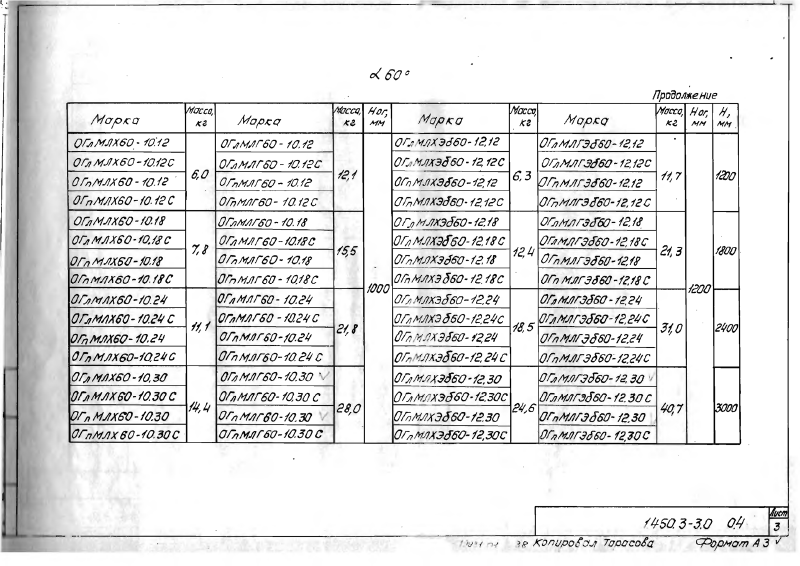 α 60°
Продолжение
Марка Масса, кг Марка Масса, кг Hог, мм Марка Масса, кг Марка Масса, кг Hог, мм H, мм
ОГлМЛХ60-10.12 6,0 ОГлМЛГ60-10.12 12,1 1000 ОГлМЛХЭб60-12,12 6,3 ОГлМЛГЭб60-12,12 11,7 1200 1200
ОГлМЛХ60-10.12С ОГлМЛГ60-10.12С ОГлМЛХЭб60-12,12С ОГлМЛГЭб60-12,12С
ОГпМЛХ60-10.12 ОГпМЛГ60-10.12 ОГпМЛХЭб60-12,12 ОГпМЛГЭб60-12,12
ОГпМЛХ60-10.12С ОГпМЛГ60-10.12С ОГпМЛХЭб60-12,12С ОГпМЛГЭб60-12,12С
ОГлМЛХ60-10.18 7,8 ОГлМЛГ60-10.18 15,5 ОГлМЛХЭб60-12.18 12,4 ОГлМЛГЭб60-12,18 21,3 1800
ОГлМЛХ60-10.18С ОГлМЛГ60-10.18С ОГлМЛХЭб60-12.18С ОГлМЛГЭб60-12,18С
ОГпМЛХ60-10.18 ОГпМЛГ60-10.18 ОГпМЛХЭб60-12.18 ОГпМЛГЭб60-12,18
ОГпМЛХ60-10.18С ОГпМЛГ60-10.18С ОГпМЛХЭб60-12.18С ОГпМЛГЭб60-12,18С
ОГлМЛХ60-10.24 11,1 ОГлМЛГ60-10.24 21,8 ОГлМЛХЭб60-12,24 18,5 ОГлМЛГЭб60-12,24 31,0 2400
ОГлМЛХ60-10.24С ОГлМЛГ60-10.24С ОГлМЛХЭб60-12,24С ОГлМЛГЭб60-12,24С
ОГпМЛХ60-10.24 ОГпМЛГ60-10.24 ОГпМЛХЭб60-12,24 ОГпМЛГЭб60-12,24
ОГпМЛХ60-10.24С ОГпМЛГ60-10.24С ОГпМЛХЭб60-12,24С ОГпМЛГЭб60-12,24С
ОГлМЛХ60-10.30 14,4 ОГлМЛГ60-10.30 28,0 ОГлМЛХЭб60-12,30 24,6 ОГлМЛГЭб60-12,30 40,7 3000
ОГлМЛХ60-10.30С ОГлМЛГ60-10.30С ОГлМЛХЭб60-12,30С ОГлМЛГЭб60-12,30С
ОГпМЛХ60-10.30 ОГпМЛГ60-10.30 ОГпМЛХЭб60-12.30 ОГпМЛГЭб60-12,30
ОГпМЛХ60-10.30С ОГпМЛГ60-10.30С ОГпМЛХЭб60-12,30С ОГпМЛГЭб60-12,30С
1450.3-3.0 04 Лист 3
Копировал Тарасова Формат А3